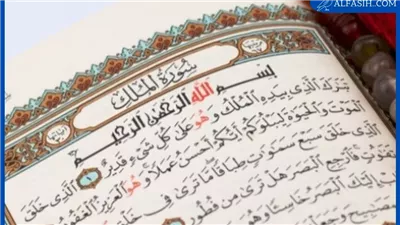 ALFASIH.COM
سُورَةُ الْمُلْكِ
بِسْمِ اللهِ الرَّحْمٰنِ الرَّحِيمِ
تَبَارَكَ الَّذِي بِيَدِهِ الْمُلْكُ وَهُوَ عَلَى كُلِّ شَيْءٍ قَدِيرٌ ١ الَّذِي خَلَقَ
الْمَوْتَ وَالْحَيٰوةَ لِيَبْلُوَكُمْ أَيُّكُمْ أَحْسَنُ عَمَلًا وَهُوَ الْعَزِيزُ الْغَفُورُ
الَّذِي خَلَقَ سَبْعَ سَمٰوَاتٍ طِبَاقًا مَا تَرٰى فِي خَلْقِ
تَفَاوُتٍ فَارْجِعِ الْبَصَرَ هَلْ تَرٰى مِنْ فُطُورٍ
إِلَيْكَ الْبَصَرُ خَاسِئًا وَهُوَ